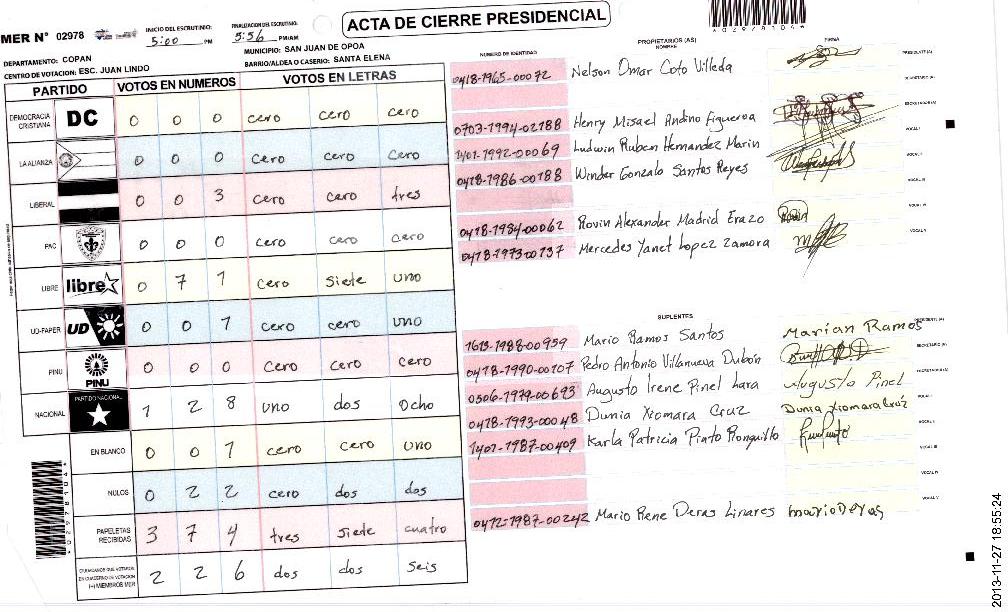 ACTA DE CIERRE PRESIDENCIAL
MER N° 02978
INICIO DEL ESCRUTINIO: 5:00 PM
FINALIZACION DEL ESCRUTINIO: 5:56 PM/AM
DEPARTAMENTO: COPAN
MUNICIPIO: SAN JUAN DE OPOA
CENTRO DE VOTACION: ESC. JUAN LINDO
BARRIO/ALDEA O CASERIO: SANTA ELENA
PARTIDO VOTOS EN NUMEROS VOTOS EN LETRAS
DEMOCRACIA CRISTIANA DC 0 0 0 cero cero cero
LA ALIANZA 0 0 0 cero cero cero
LIBERAL 0 0 3 cero cero tres
PAC 0 0 0 cero cero cero
LIBRE libre 0 7 1 cero siete uno
UD-FAPER UD 0 0 1 cero cero uno
PINU PINU 0 0 0 cero cero cero
NACIONAL PARTIDO NACIONAL 1 2 8 uno dos ocho
EN BLANCO 0 0 1 cero cero uno
NULOS 0 2 2 cero dos dos
PAPELETAS RECIBIDAS 3 7 4 tres siete cuatro
CIUDADANOS QUE VOTARON EN CUADERNO DE VOTACION (+) MIEMBROS MER 2 2 6 dos dos seis
NUMERO DE IDENTIDAD PROPIETARIOS (AS) NOMBRE FIRMA
0418-1965-00072 Nelson Omar Coto Villeda PRESIDENTE(A)
SECRETARIO (A)
0703-1994-02188 Henry Misael Andino Figueroa ESCRUTADOR(A)
1401-1992-00069 Ludwin Ruben Hernandez Marin VOCAL I
0418-1986-00188 Winder Gonzalo Santos Reyes VOCAL II
VOCAL III
0418-1984-00062 Rovin Alexander Madrid Erazo Rovin VOCAL IV
0418-1973-00137 Mercedes Yanet Lopez Zamora VOCAL V
SUPLENTES
1613-1988-00959 Mario Ramos Santos Marian Ramos PRESIDENTE (A)
0418-1990-00107 Pedro Antonio Villanueva Dubón SECRETARIO (A)
0506-1979-00693 Augusto Irene Pinel Lara Augusto Pinel ESCRUTADOR(A)
0418-1993-00048 Dunia Xiomara Cruz Dunia Xiomara Cruz VOCAL I
1401-1987-00409 Karla Patricia Pinto Ronquillo VOCAL II
VOCAL III
VOCAL IV
0412-1987-00242 Mario Rene Deras Linares mario Deras VOCAL V
2013-11-27 18:55:24